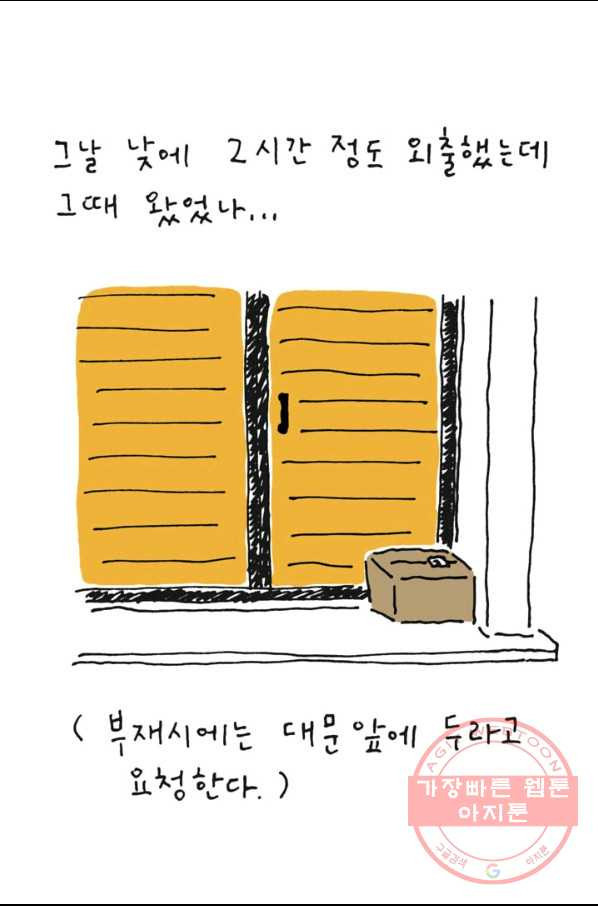 그날 낮에 2시간 정도 외출했는데
그때 왔었나...
( 부재시에는 대문앞에 두라고
요청한다. )
AGIT WEBTOON
가장빠른 웹툰
아지툰
구글검색 G 아지툰